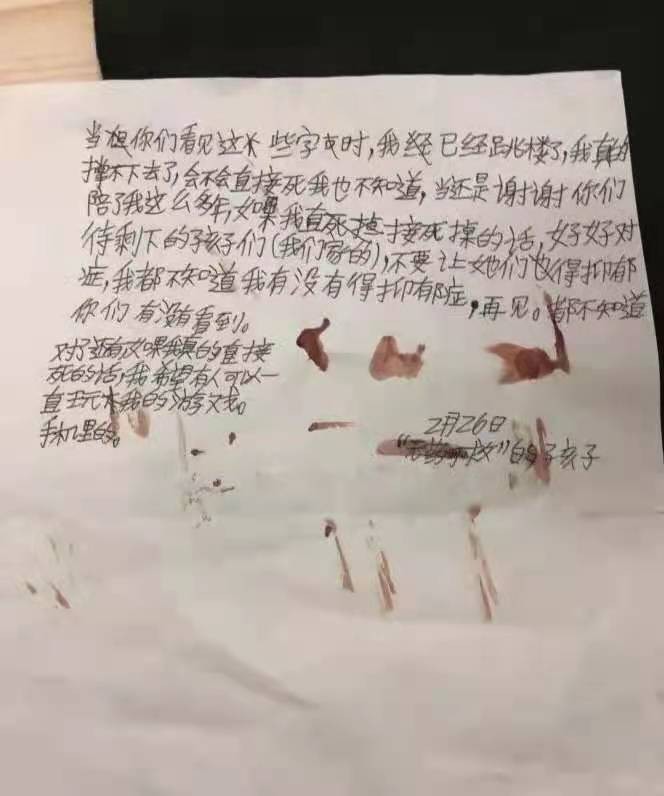 当想你们看见这些字时,我经已经跳楼了,我真的
撑不下去了,会不会直接死我也不知道,当还是谢谢你们
陪了我这么多年,如果我直死掉接死掉的话,好好对
待剩下的孩子们(我们家的),不要让她们也得抑郁
症,我都不知道我有没有得抑郁症,再见。都不知道
你们有没有看到。
对了还有如果我真的直接
死的话,我希望有人可以一
直玩我的游戏。
手机里的。
2月26日
“无药可救”的孩子